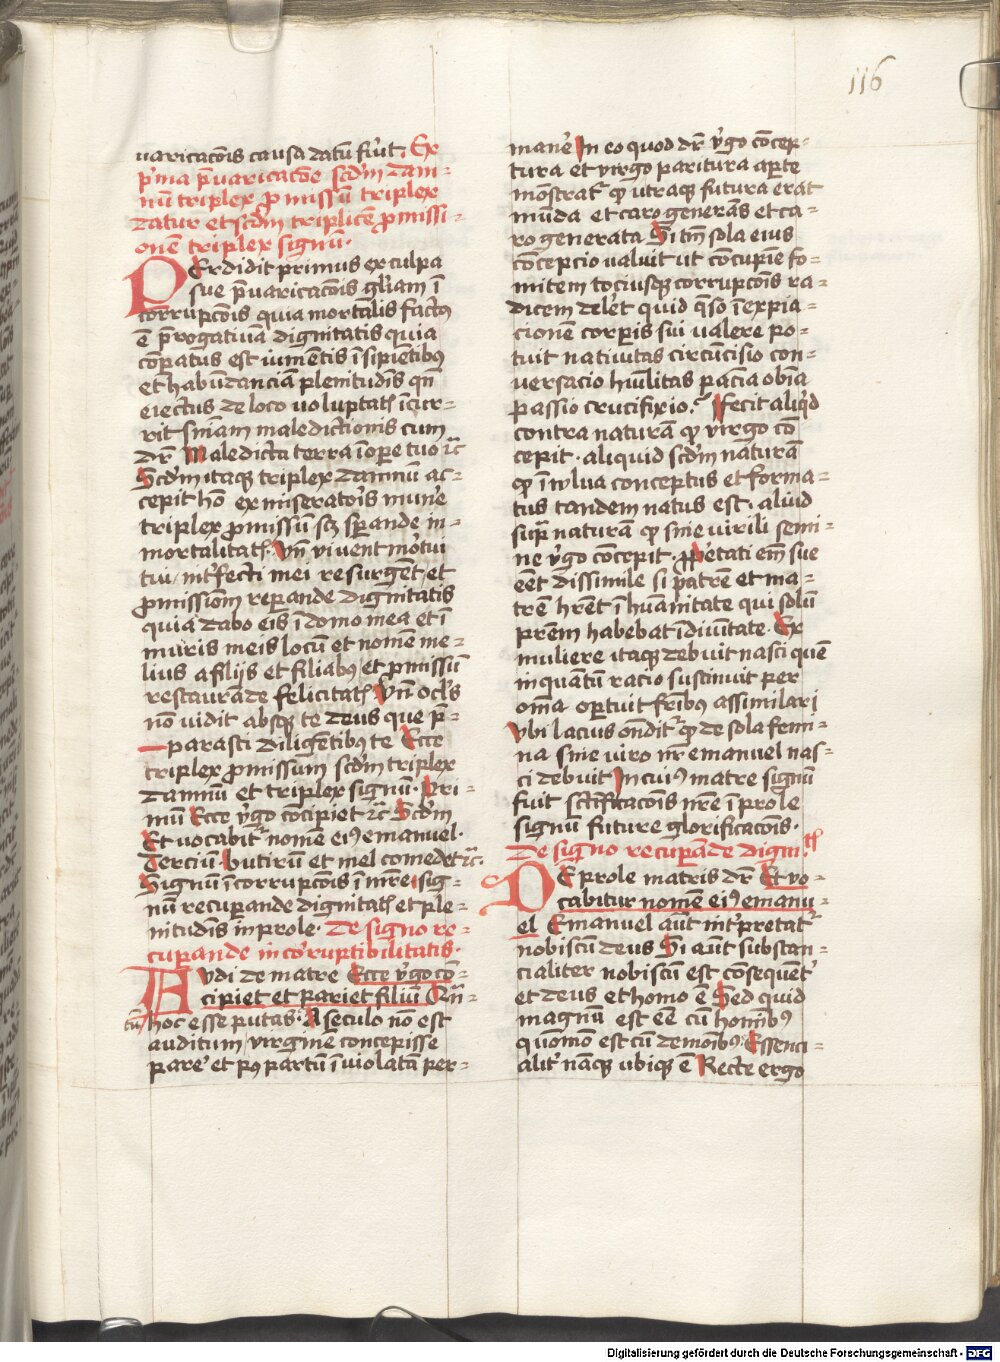 116
uaricacōis causa datū fu̓it. Ex
p̓ma p̄uaricacōe scd̓m dam-
nū triplex ꝓmissū triplex
datur et scd̓m triplicē ꝓmissi-
onē triplex signū.
PErdidit primus ex culpa
sue p̄uaricacōis gl̄iam ī
corrupcōis quia mortalis factꝰ
ē p̄rogatiuā dignitatis quia
cōparatus est iumētis īsipiētibꝰ
et habūdanciā plenitudīs qn̄
eiectus de loco uoluptatꝭ īcur-
rit sn̄iam maledictionis cum
dr̄ Maledicta terra ī oꝑe tuo ⁊c̄
Scd̓m itaqꝫ triplex damnū ac-
cepit hō ex miseratoīs mun̄e
triplex ꝓmissū scꝫ sꝑande in-
mortalitatꝭ. Vn̄ viuent mo̓tui
tui, int̓fecti mei resurgēt, et
ꝓmissiom̄ reꝑande dignitatis
quia dabo eis ī domo mea et ī
muris meis locū et nomē me-
lius a filijs et filiabꝰ et ꝓmissū
restaurāde felicitatꝭ Vn̄ ocl̓s
nō vidit absqꝫ te deus que p̄-
parasti diligētibꝰ te Ecce
triplex ꝓmissum scd̓m triplex
damnū et triplex signū. Pri-
mū Ecce v̓go cōcipiet ⁊c̄ Scd̓m
Et uocabit᷑ nomē eiꝰ emanuel.
Terciū. butirū et mel comedet ⁊c̄.
Signū īcorrupcōis ī mr̄e. sig-
nū recuperande dignitatꝭ et ple-
nitudīs in prole. De signo re-
cuꝑande inco̓ruptibilitatis.
AVdi de matre Ecce v̓go cō-
cipiet et pariet filiū Qn̄-
tū hoc esse putas. A seculo nō est
auditum, virginē concepisse
pare᷑ et pꝰ partū īuiolatā per-
manē In eo quod dr̄ v̓go cōcep-
tura et virgo paritura aꝑte
mōstrat᷑ ꝙ utraqꝫ futura erāt
mūda et caro generās et ca-
ro generata Si tm̄ sola eius
cōcepcio ualuit ut cōcupīe fo-
mitem tociusqꝫ corrupcōis ra-
dicem deleꝛt quid qͣso ī expia-
cionē corꝑis sui ualere po-
tuit natiuitas circūcisio con-
versacio hūilitas pacīa obīa
passio crucifixio. Fecit aliq̓d
contra naturā ꝙ virgo cō
cepit. aliquid scd̓m naturā
ꝙ ī vlua conceptus et forma-
tus tandem natus est. aliud
supͣ naturā ꝙ sine virili semi-
ne v̓go cōcepit. ꝓp̓etati em̄ sue
eēt dissimile si patrē et ma-
trē hr̄et ī hūanitate qui solū
pr̄em habebat ī diūitate. Ex
muliere itaqꝫ debuit nasci quē
inquantū racio sustinuit per
om̄a oꝑtuit fr̄ibꝰ assimilari
Vbi lacius ondit᷑ ꝙ de sola femi-
na sine viro nr̄ emanuel nas-
ci debuit In cuiꝰ matre signū
fuit sctīficacōis nr̄e ī prole
signū future glorificacōis.
De signo recuꝑande digni.tꝭ
DE prole matris dr̄ Et vo-
cabitur nomē eiꝰ emanu-
el Emanuel aūt int̓pretat᷑
nobiscū deus Si aūt substan-
cialiter nobiscū est cōsequēt᷑
et deus et homo ē Sed quid
magnū est eē cū homībꝰ
quōmō est cū demoībꝰ: Essenci-
alit̓ nāqꝫ ubiqꝫ ē Recte ergo
Digitalisierung gefördert durch die Deutsche Forschungsgemeinschaft - DFG